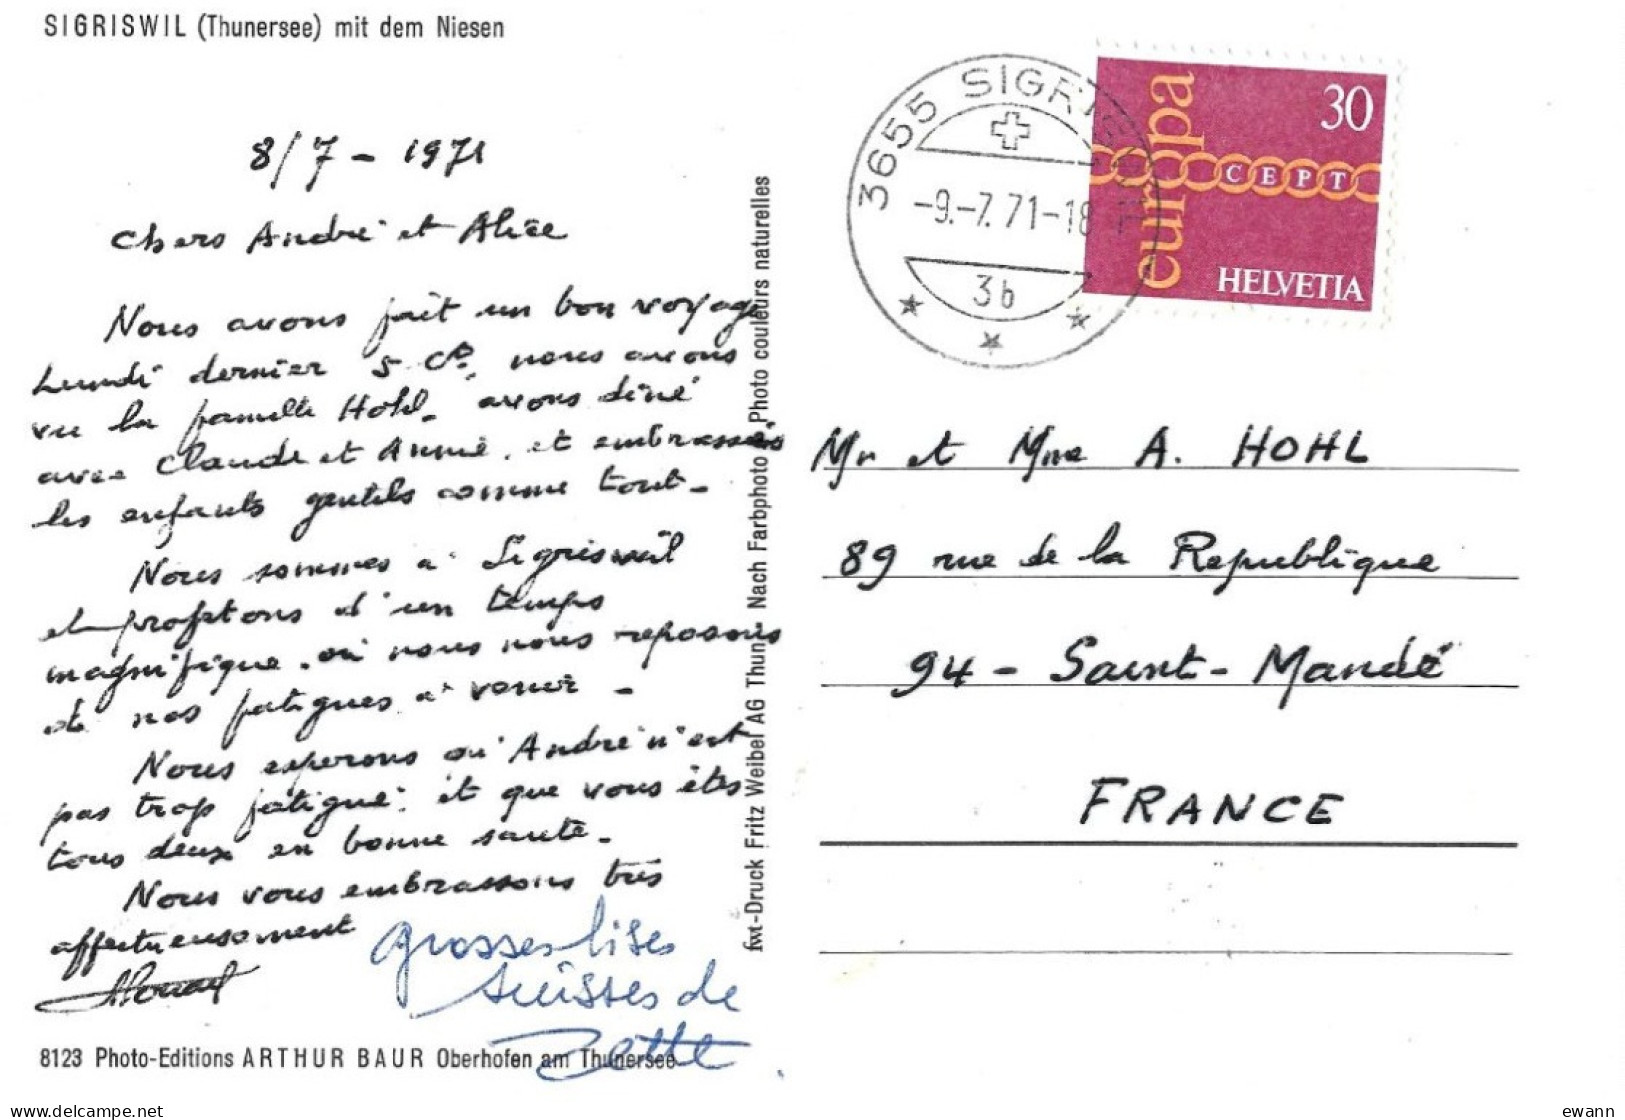 SIGRISWIL (Thunersee) mit dem Niesen
8/7 - 1971
Chers André et Alice
Nous avons fait un bon voyage
Lundi dernier 5 ct, nous avons
vu la famille Hohl. avons diné
avec Claude et Annie, et embrassés
les enfants gentils comme tout -
Nous sommes à Sigriswil
et profitons d'un temps
magnifique. où nous nous reposons
de nos fatigues à venir -
Nous esperons qu'André n'est
pas trop fatigué. et que vous êtes
tous deux en bonne santé -
Nous vous embrassons très
affectueusement
grosses bises
suisses de
Bette
8123 Photo-Editions ARTHUR BAUR Oberhofen am Thunersee
fwt-Druck Fritz Weibel AG Thun Nach Farbphoto Photo couleurs naturelles
3655 SIGRISWIL
-9.-7.71-18
3b
europa
30
CEPT
HELVETIA
Mr et Mme A. HOHL
89 rue de la Republique
94 - Saint-Mandé
FRANCE
ewann